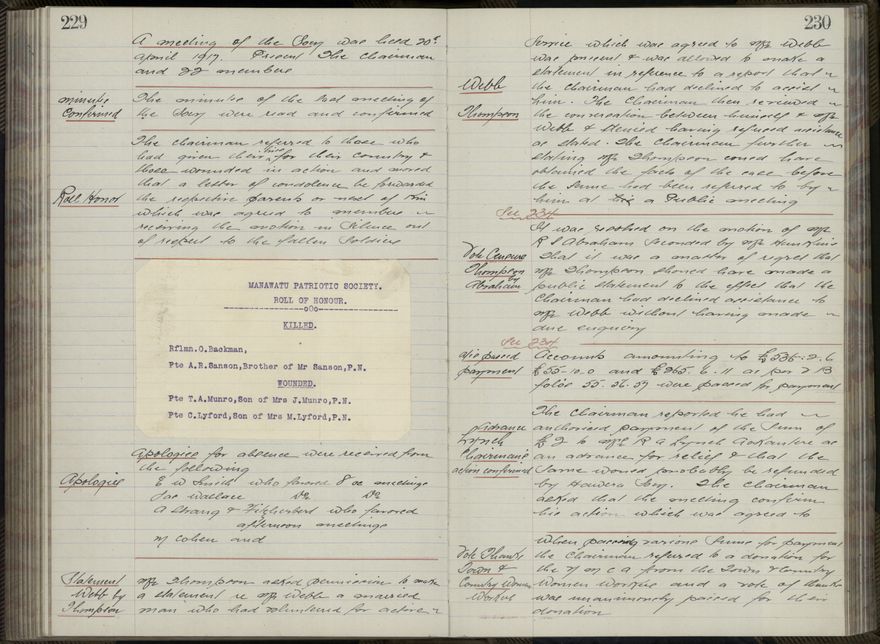 229
A meeting of the Socy was held 20th
April 1917. Present The Chairman
and 22 members
Minutes
Confirmed
The minutes of the last meeting of
the Socy were read and confirmed
The Chairman referred to those who
had given their lives for their country &
those wounded in action and moved
that a letter of condolence be forwarded
Roll Honor
the respective parents or next of kin
which was agreed to members
receiving the motion in silence out
of respect to the fallen Soldiers
MANAWATU PATRIOTIC SOCIETY.
ROLL OF HONOUR.
---------------oOo---------------
KILLED.
Rflmn.O.Backman,
Pte A.R.Sanson,Brother of Mr Sanson,P.N.
WOUNDED.
Pte T.A.Munro,Son of Mrs J.Munro,P.N.
Pte C.Lyford,Son of Mrs M.Lyford,P.N.
Apologies for absence were received from
the following
Apologies
E W Smith who favored 8 oc meetings
Joe Wallace Do Do
A Strang & Fitzherbert who favored
afternoon meetings
M Cohen and
Statement
Webb by
Thompson
Mr Thompson asked permission to make
a statement re Mr Webb a married
man who had volunteered for active
230
Service which was agreed to Mr Webb
was present & was allowed to make a
statement in reference to a report that
Webb
Thompson
the Chairman had declined to assist
him. The Chairman then reviewed
the conversation between himself & Mr
Webb & denied having refused assistance
as stated. The Chairman further
stating Mr Thompson could have
obtained the facts of the case before
the same had been referred to by
him at a Public meeting
See 234
It was resolved on the motion of Mr
R S Abraham seconded by Mr Hunkin
Vote Censure
Thompson
by
Abraham
That it was a matter of regret that
Mr Thompson should have made a
public statement to the effect that the
Chairman had declined assistance to
Mr Webb without having made
due enquiry
See 234
a/cs passed
payment
Accounts amounting to £536. 2. 6
£55. 10. 0 and £265. 6. 11 as per
folio 55. 56. 57 were passed for payment
Advance
Lynch
Chairmans
action confirmed
The Chairman reported he had
authorised payment of the sum of
£2 to Mr R A Lynch as
an advance for relief & that the
same would probably be refunded
by Hawera Socy. The Chairman
asked that the meeting confirm
his action which was agreed to
Vote Thanks
Town &
Country Women
Workers
When passing various sums for payment
the Chairman referred to a donation for
the Y M C A from the Town & Country
Women Workers and a vote of thanks
was unanimously passed for their
donation